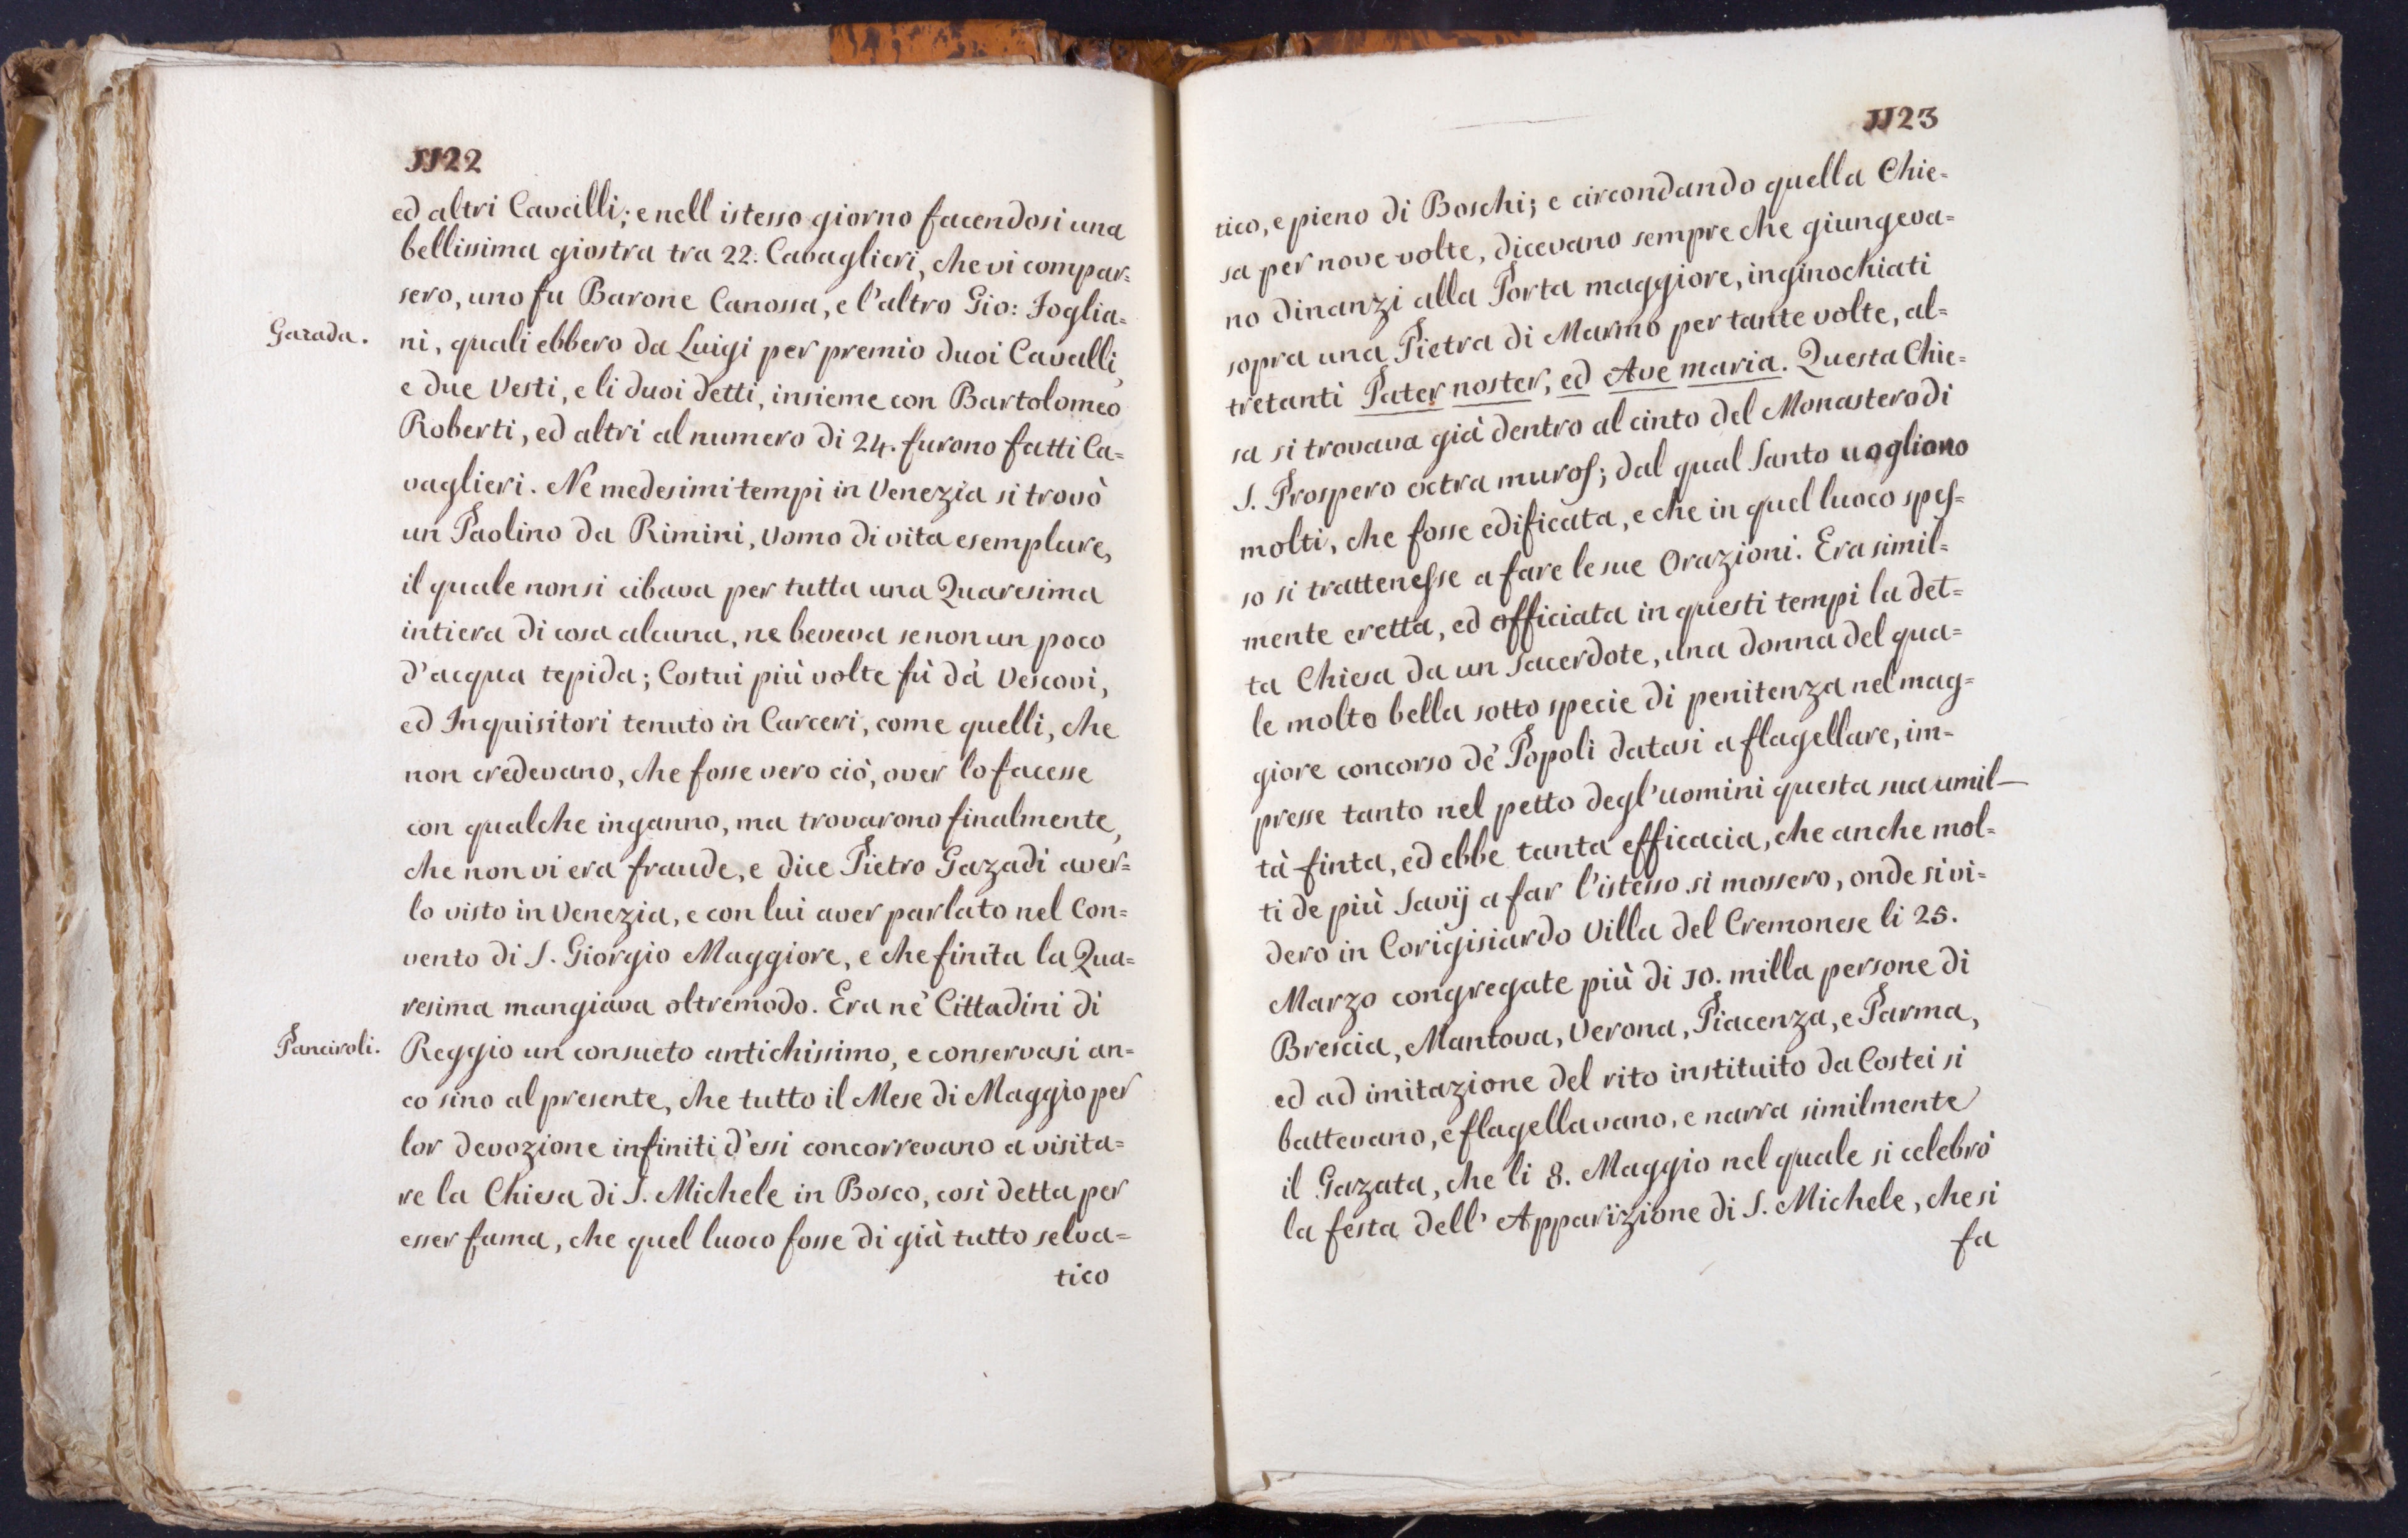 1122
ed altri Cavalli; e nell istesso giorno facendosi una
bellissima giostra tra 22. Cavaglieri, che vi compar=
sero, uno fu Barone Canossa, e l'altro Gio: Foglia=
Gazada.
ni, quali ebbero da Luigi per premio duoi Cavalli,
e due Vesti, e li duoi detti, insieme con Bartolomeo
Roberti, ed altri al numero di 24. furono fatti Ca=
vaglieri. Ne medesimi tempi in Venezia si trovò
un Paolino da Rimini, Uomo di vita esemplare,
il quale non si cibava per tutta una Quaresima
intiera di cosa alcuna, ne beveva se non un poco
d'acqua tepida; Costui più volte fù dà Vescovi,
ed Inquisitori tenuto in Carceri, come quelli, che
non credevano, che fosse vero ciò, over lo facesse
con qualche inganno, ma trovarono finalmente,
che non vi era fraude, e dice Pietro Gazadi aver=
lo visto in Venezia, e con lui aver parlato nel Con=
vento di S. Giorgio Maggiore, e che finita la Qua=
resima mangiava oltremodo. Era nè Cittadini di
Panciroli.
Reggio un consueto antichissimo, e conservasi an=
co sino al presente, che tutto il Mese di Maggio per
lor devozione infiniti d'essi concorrevano a visita=
re la Chiesa di S. Michele in Bosco, così detta per
esser fama, che quel luoco fosse di già tutto selva=
tico
1123
tico, e pieno di Boschi; e circondando quella Chie=
sa per nove volte, dicevano sempre che giungeva=
no dinanzi alla Porta maggiore, inginochiati
sopra una Pietra di Marmo per tante volte, al=
tretanti Pater noster, ed Ave maria. Questa Chie=
sa si trovava già dentro al cinto del Monastero di
S. Prospero extra muros; dal qual Santo uogliono
molti, che fosse edificata, e che in quel luoco spes=
so si trattenesse a fare le sue Orazioni. Era simil=
mente eretta, ed officiata in questi tempi la det=
ta Chiesa da un Sacerdote, una donna del qua=
le molto bella sotto specie di penitenza nel mag=
giore concorso dè Popoli datasi a flagellare, im=
presse tanto nel petto degl'uomini questa sua umil—
tà finta, ed ebbe tanta efficacia, che anche mol=
ti de più Savij a far l'istesso si mossero, onde si vi=
dero in Corigisiardo Villa del Cremonese li 25.
Marzo congregate più di 10. milla persone di
Brescia, Mantova, Verona, Piacenza, e Parma,
ed ad imitazione del rito instituito da Costei si
battevano, e flagellavano, e narra similmente
il Gazata, che li 8. Maggio nel quale si celebrò
la festa dell' Apparizione di S. Michele, che si
fa